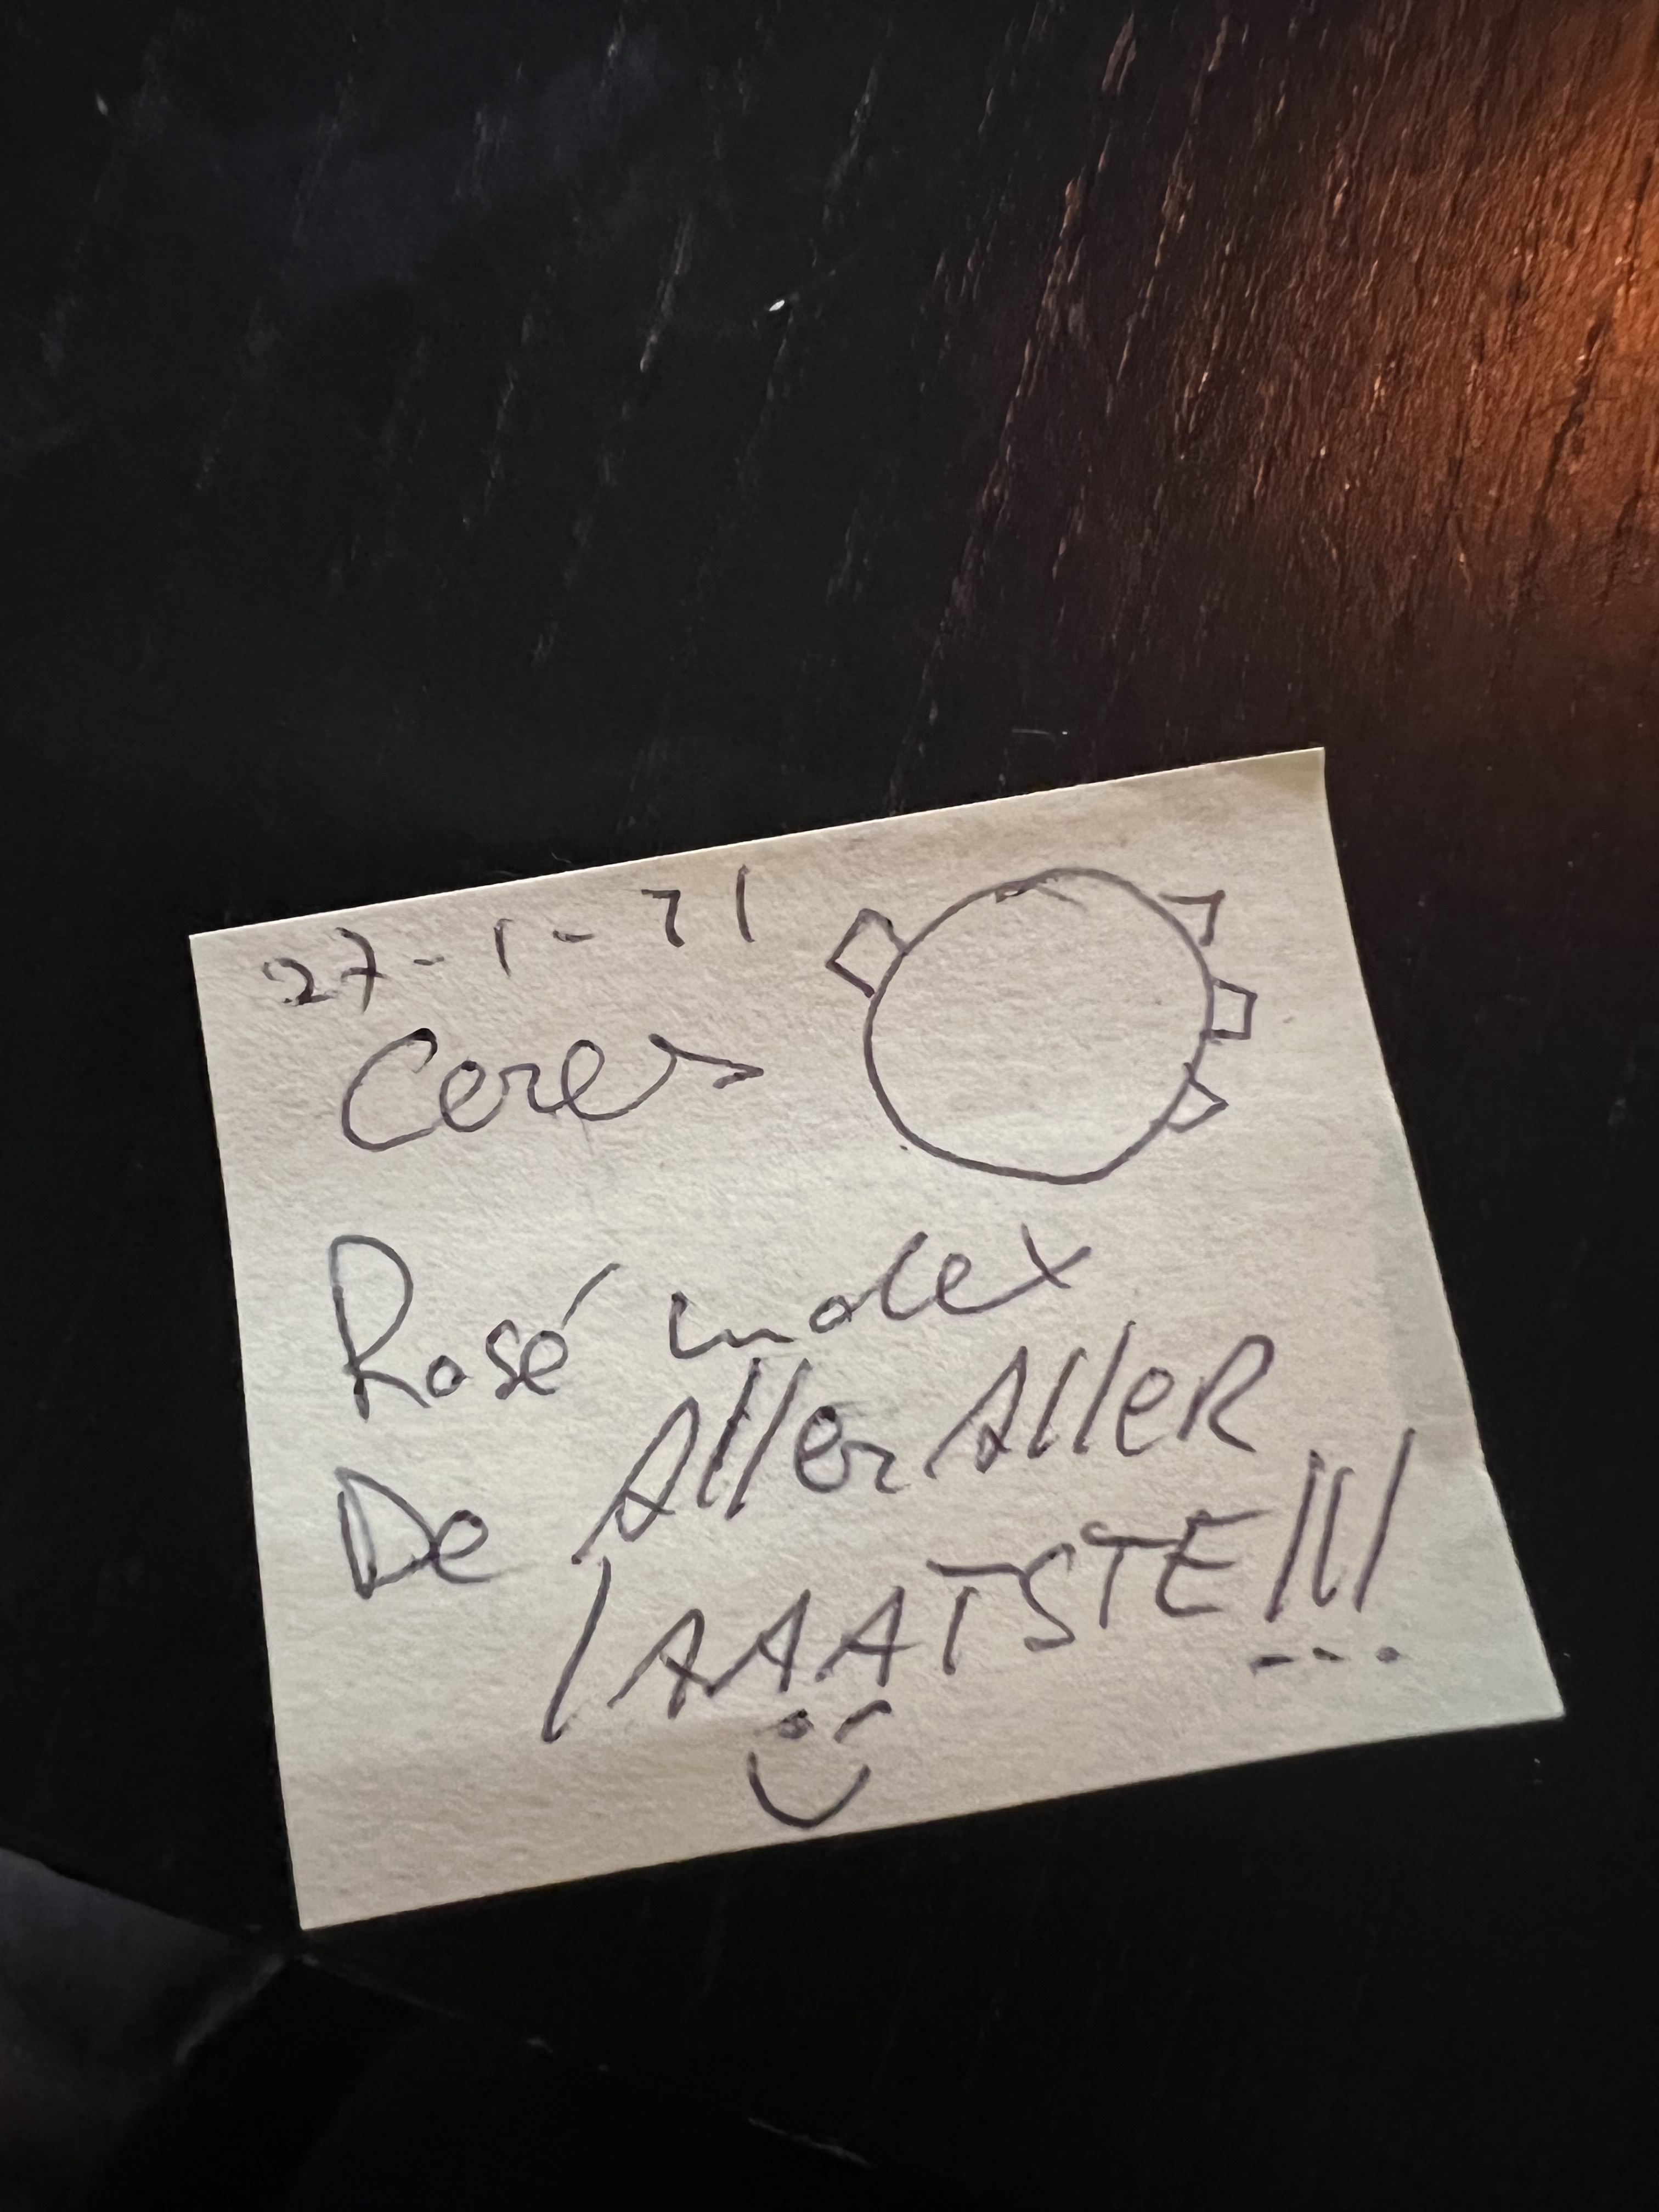 27-1-71
Ceres
Rosé index
De Aller ALLER
lAAATSTE!!!